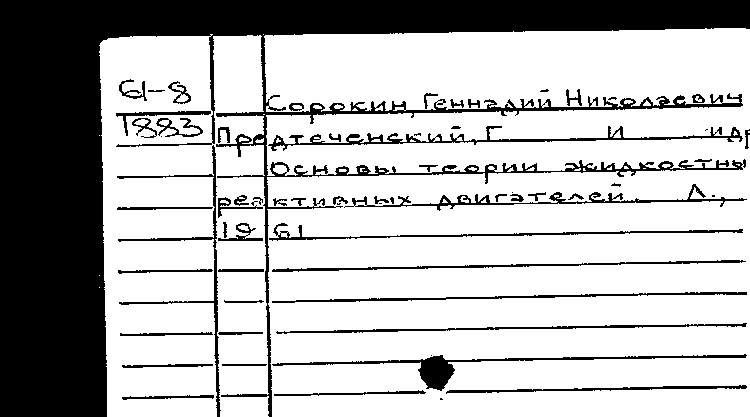 61-8
1883
Сорокин, Геннадий Николаевич
Предтеченский, Г И и др
Основы теории жидкостны
реактивных двигателей. Л.,
1961